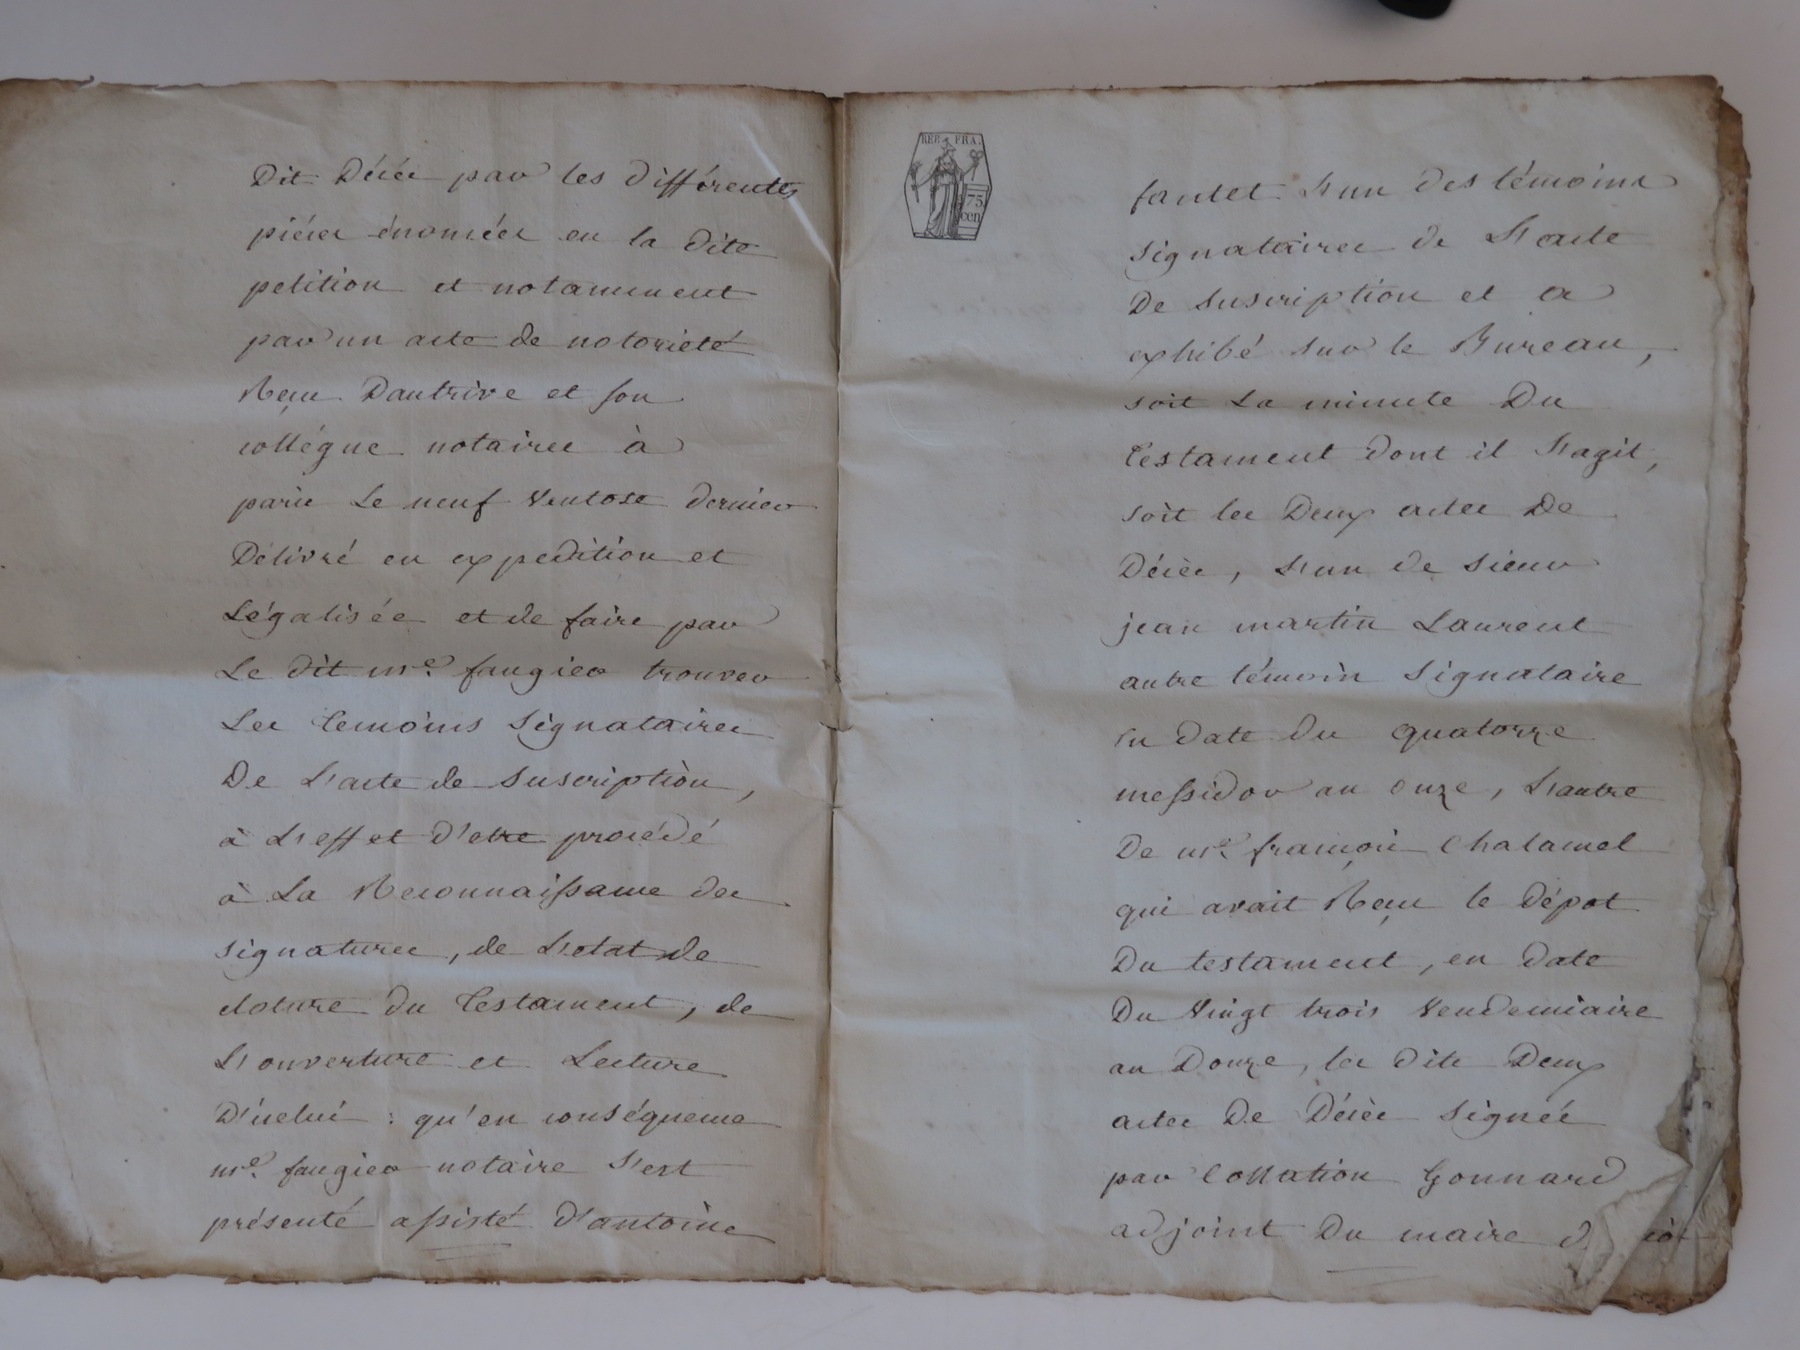 Dit Décès par les différentes
pièces énoncées en la dite
petition et notamment
par un acte de notorieté
Reçu Dautrive et son
collégue notaires à
paris Le neuf Ventose dernier
Délivré en expedition et
Légalisée et de faire par
Le dit me. faugier trouver
Les temoins signataires
De L'acte de suscription,
à L'effet d'etre procédé
à La Reconnaissance des
signatures, de L'etat de
cloture du testament, de
L'ouverture et Lecture
D'icelui : qu'en conséquence
me. faugier notaire s'est
présenté assisté d'antoine
REP. FRA.
75
cen
fautet L'un des témoins
signataires de L'acte
De suscription et a
exhibé sur le Bureau,
soit La minute Du
testament dont il s'agit,
soit les Deux actes De
Décès, L'un de sieur
jean martin Laurent
autre témoin signataire
en date du quatorze
messidor an onze, L'autre
De me. françois Chalamel
qui avait Reçu le dépot
Du testament, en date
Du Vingt trois Vendemiaire
an Douze, les dits Deux
actes De Décès signés
par Collation Gonnard
adjoint Du maire